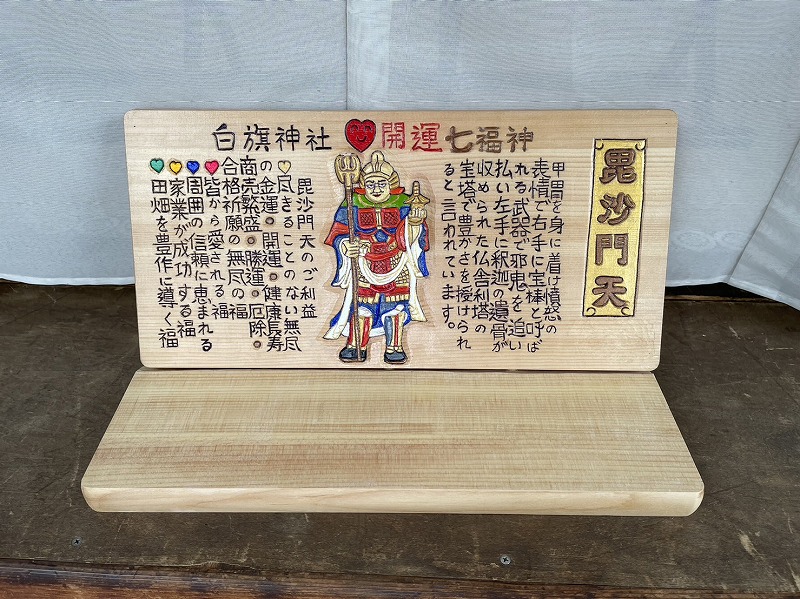 白旗神社 開運七福神
毘沙門天
甲冑を身に着け憤怒の
表情で右手に宝棒と呼ば
れる武器で邪鬼を追い
払い左手に釈迦の遺骨が
収められた仏舎利塔の
宝塔で豊かさを授けられ
ると言われています。
毘沙門天のご利益
尽きることのない無尽
の金運。開運。健康長寿
商売繁盛。勝運。厄除。
合格祈願の無尽の福
皆から愛される福
周囲の信頼に恵まれる
家業が成功する福
田畑を豊作に導く福